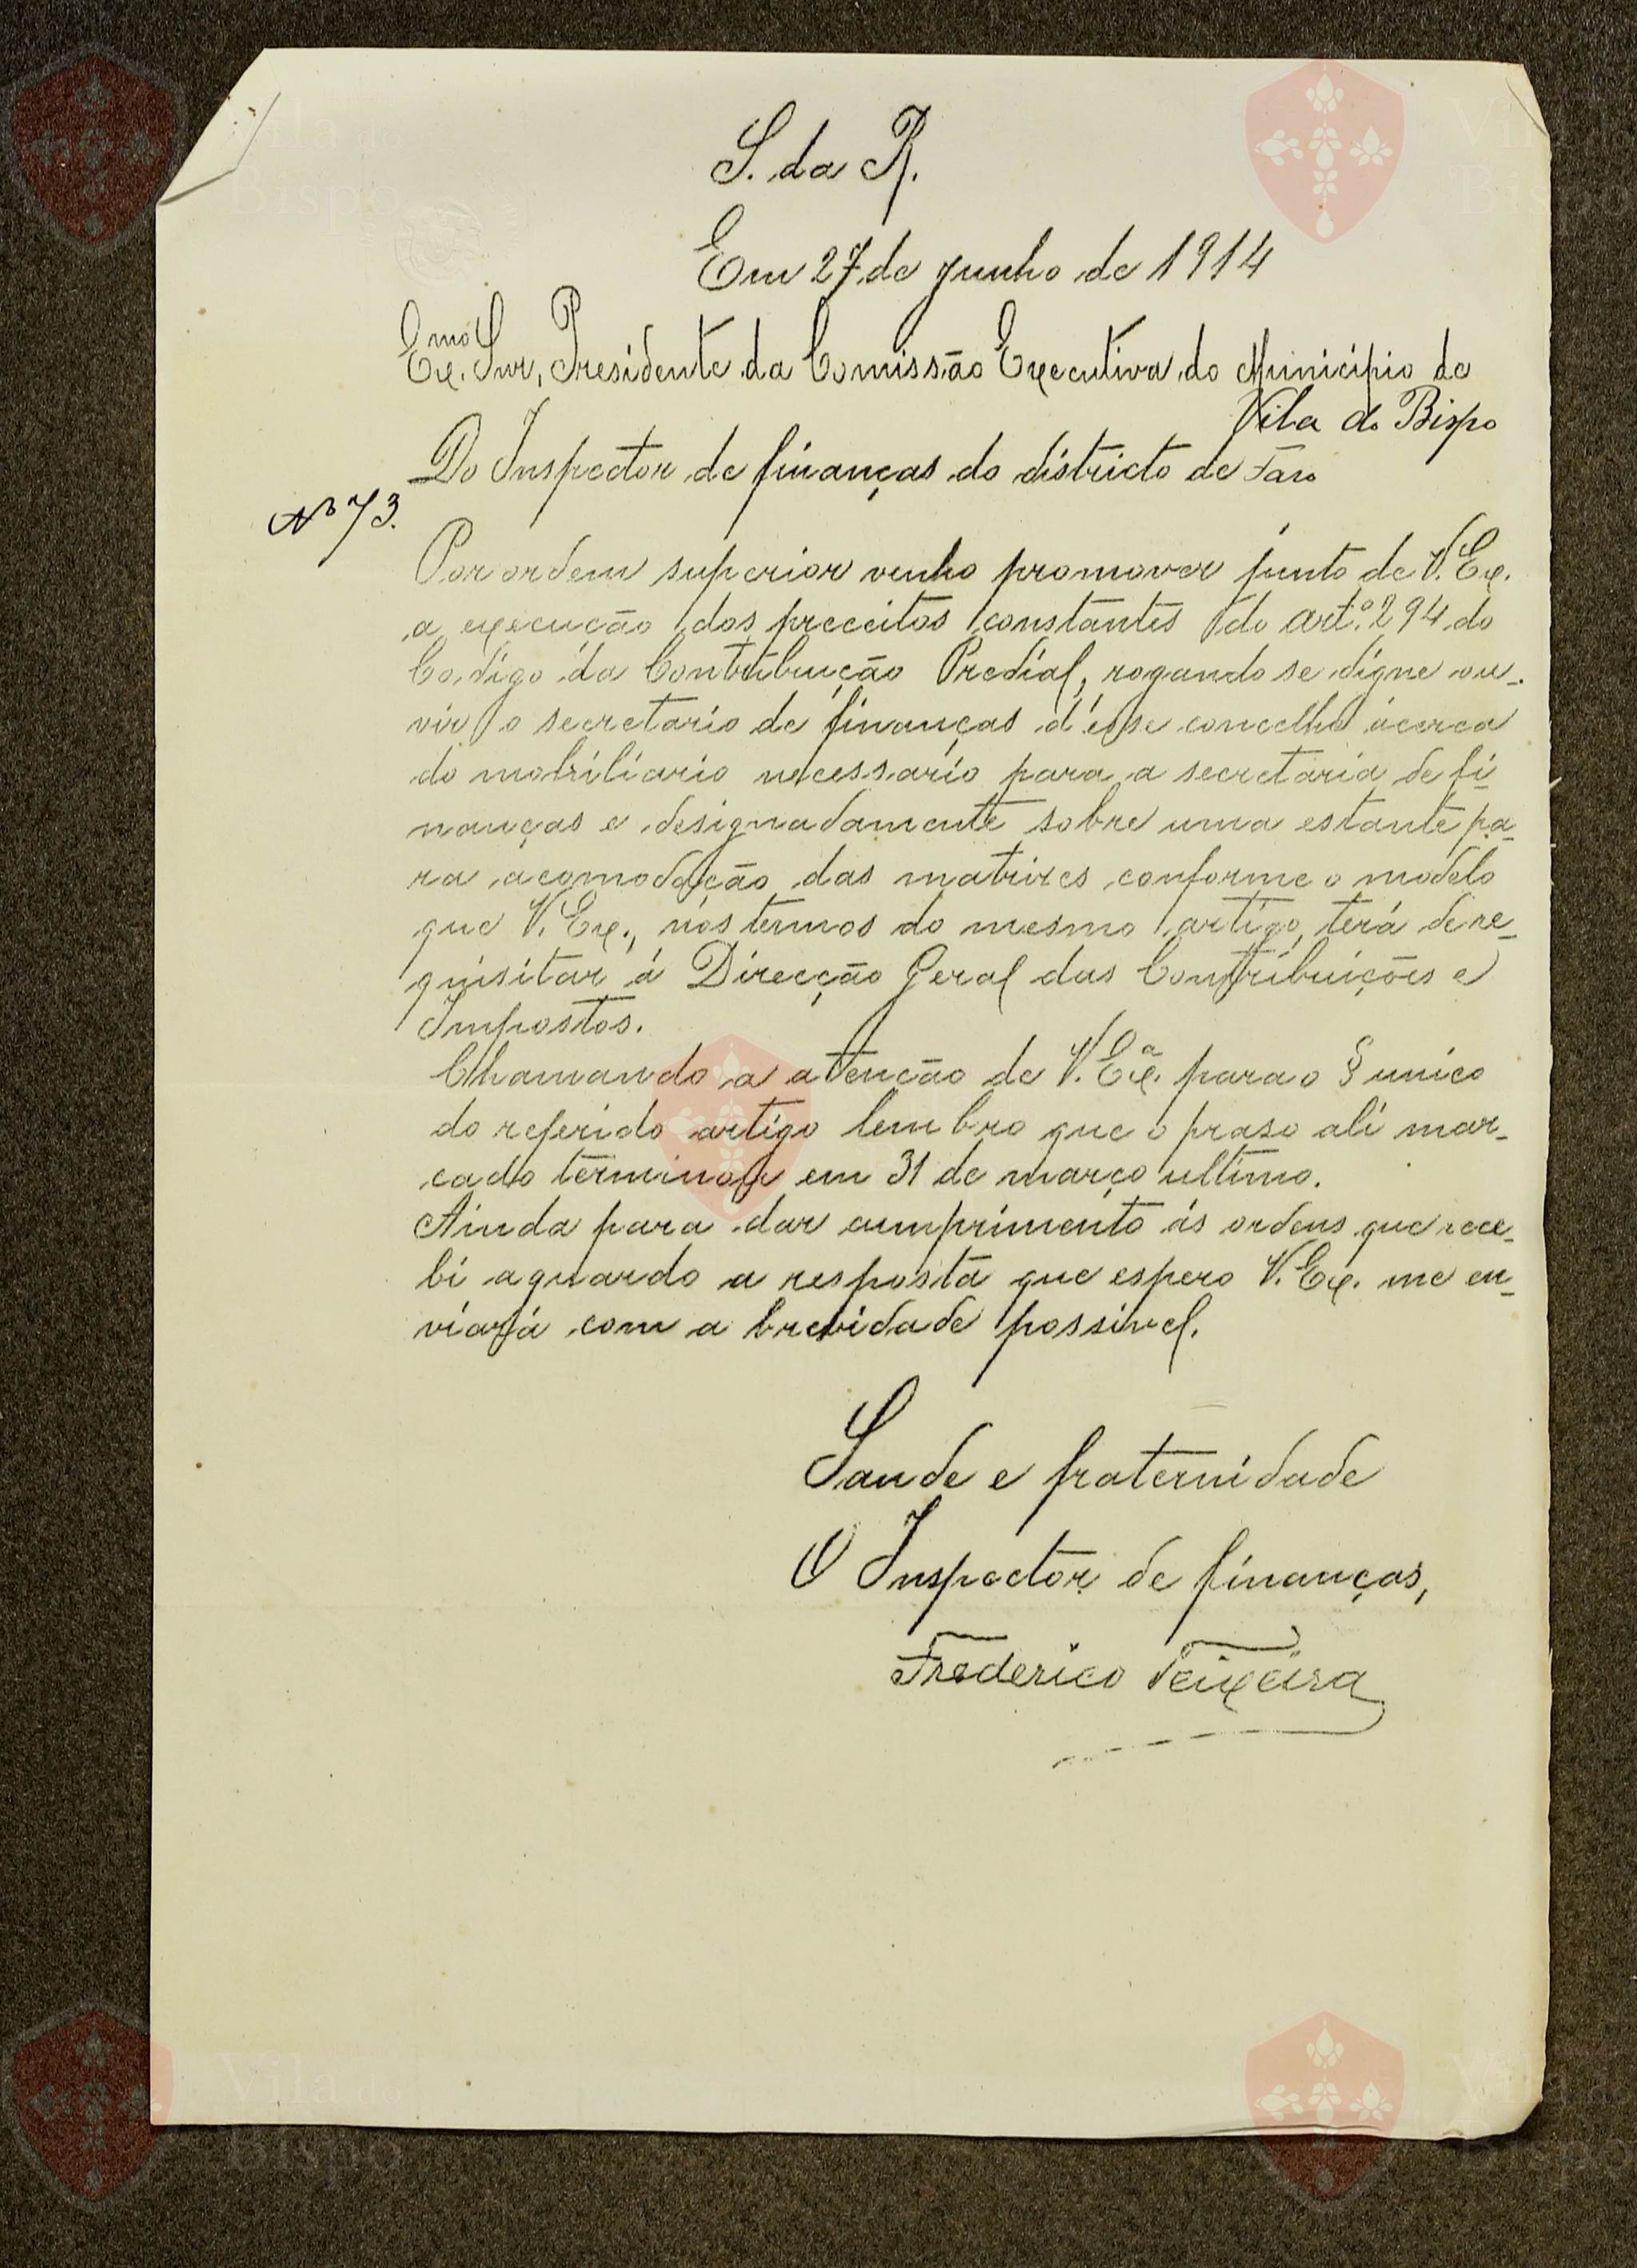 S. da R.
Em 27 de junho de 1914
Ex.mo Snr, Presidente da Comissão Executiva do Municipio de
Vila do Bispo
Do Inspector de finanças do districto de Faro
Nº 73.
Por ordem superior venho promover junto de V. Ex.
a execução dos preceitos constantes do art.º 294 do
Codigo da Contribuição Predial, rogando se digne ou-
vir o secretario de finanças d'esse concelho ácerca
do mobiliario necessario para a secretaria de fi-
nanças e designadamente sobre uma estante pa-
ra acomodação das matrizes conforme o modelo
que V. Ex., nos termos do mesmo artigo, terá de re-
quisitar á Direcção Geral das Contribuições e
Impostos.
Chamando a atenção de V. Ex.ª para o § unico
do referido artigo lembro que o praso ali mar-
cado terminou em 31 de março ultimo.
Ainda para dar cumprimento ás ordens que rece-
bi aguardo a resposta que espero V. Ex. me en-
viará com a brevidade possivel.
Saude e fraternidade
O Inspector de finanças,
Frederico Teixeira
Vila do
Bispo
Vila do
Bispo